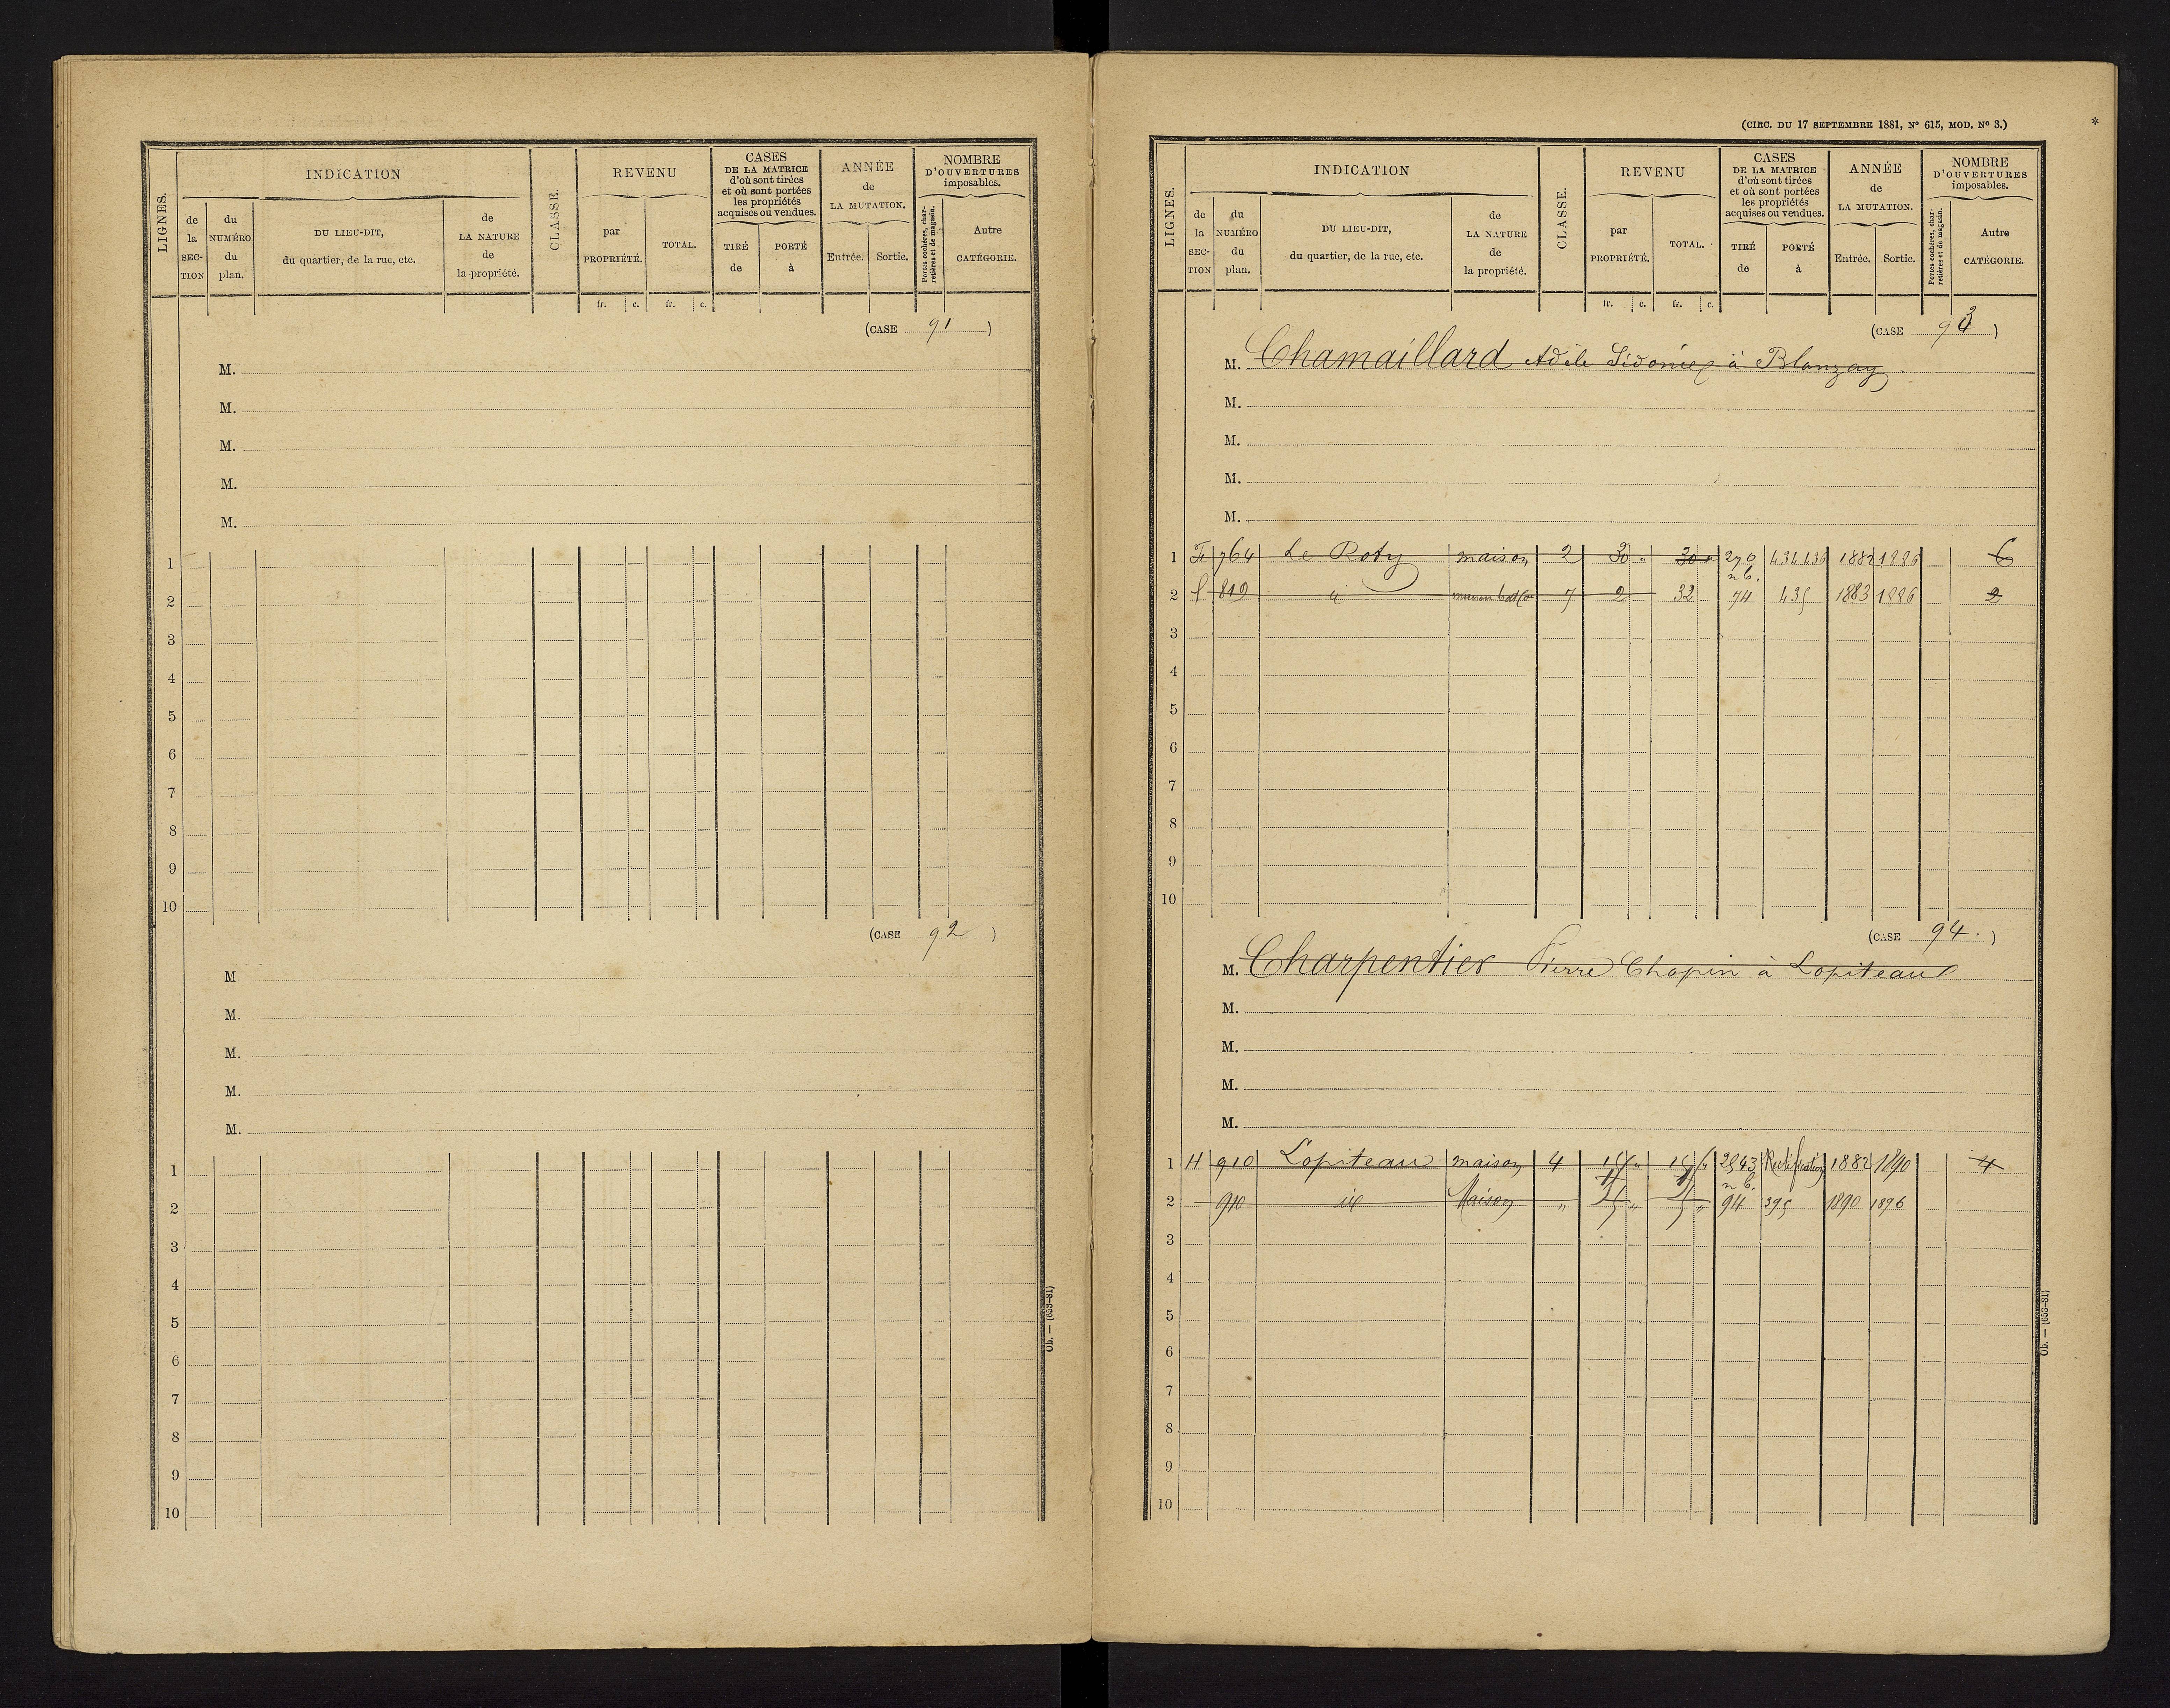 LIGNES. INDICATION CLASSE. REVENU CASES DE LA MATRICE d'où sont tirées et où sont portées les propriétés acquises ou vendues. ANNÉE de LA MUTATION. NOMBRE D'OUVERTURES imposables.
de la SECTION du NUMÉRO du plan. DU LIEU-DIT, du quartier, de la rue, etc. de LA NATURE de la propriété. par PROPRIÉTÉ. TOTAL. TIRÉ de PORTÉ à Entrée. Sortie. Portes cochères, charretières et de magasin. Autre CATÉGORIE.
fr. c. fr. c.
(CASE 91)
M.
M.
M.
M.
M.
1
2
3
4
5
6
7
8
9
10
(CASE 92)
M
M.
M.
M.
M.
1
2
3
4
5
6
7
8
9
10
Ob. — (653-81)
(CIRC. DU 17 SEPTEMBRE 1881, N° 615, MOD. N° 3.)
*
LIGNES. INDICATION CLASSE. REVENU CASES DE LA MATRICE d'où sont tirées et où sont portées les propriétés acquises ou vendues. ANNÉE de LA MUTATION. NOMBRE D'OUVERTURES imposables.
de la SECTION du NUMÉRO du plan. DU LIEU-DIT, du quartier, de la rue, etc. de LA NATURE de la propriété. par PROPRIÉTÉ. TOTAL. TIRÉ de PORTÉ à Entrée. Sortie. Portes cochères, charretières et de magasin. Autre CATÉGORIE.
fr. c. fr. c.
(CASE 93)
M. Chamaillard Adèle Sidonie à Blanzay
M.
M.
M.
M.
1 764 Le Roty maison 2 30 " 30 " 270 434 436 1882 1886 6
n b.
2 819 " maison 7 2 32 74 435 1883 1886 2
3
4
5
6
7
8
9
10
(CASE 94.)
M. Charpentier Pierre Chopin à Lopiteau
M.
M.
M.
M.
1 H 910 Lopiteau maison 4 15 " 15 " 2843 Rectification 1882 1890 4
n b.
2 910 id Maison " " " 94 395 1890 1896
3
4
5
6
7
8
9
10
Ob. — (653-81)